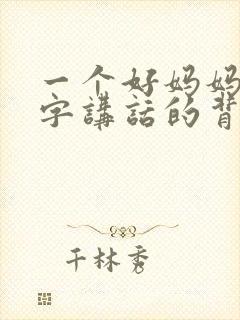 一个好妈妈
字講話的背
千林秀